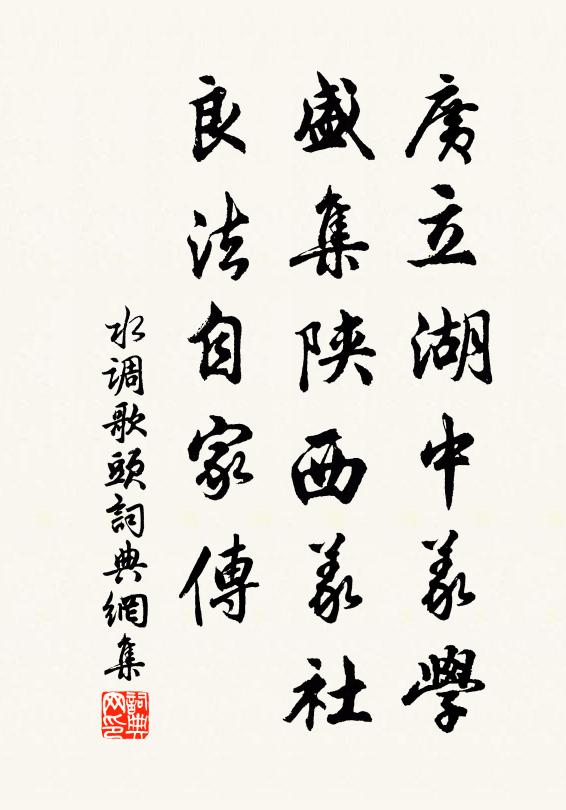 廣立湖中義學
盛集陝西義社
良法自家傳
水调歌頭詞典網集
詞典网印